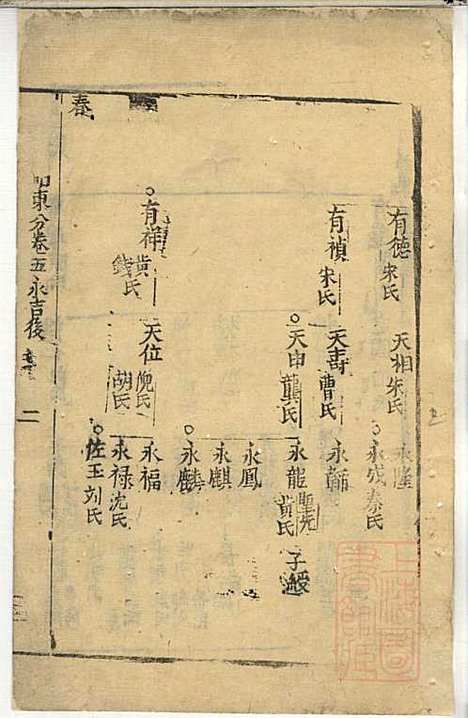 有德 朱氏
天相 朱氏
永隆
永成 秦氏
有禎 朱氏
天壽 曹氏
永
天申 龔氏
永龍 黃氏
子
永鳳
永麒
永麟
有祥 黃 錢氏
天位 倪氏 胡氏
永福
永祿 沈氏
佐玉 刘氏
春
如東分卷五永吉後
二